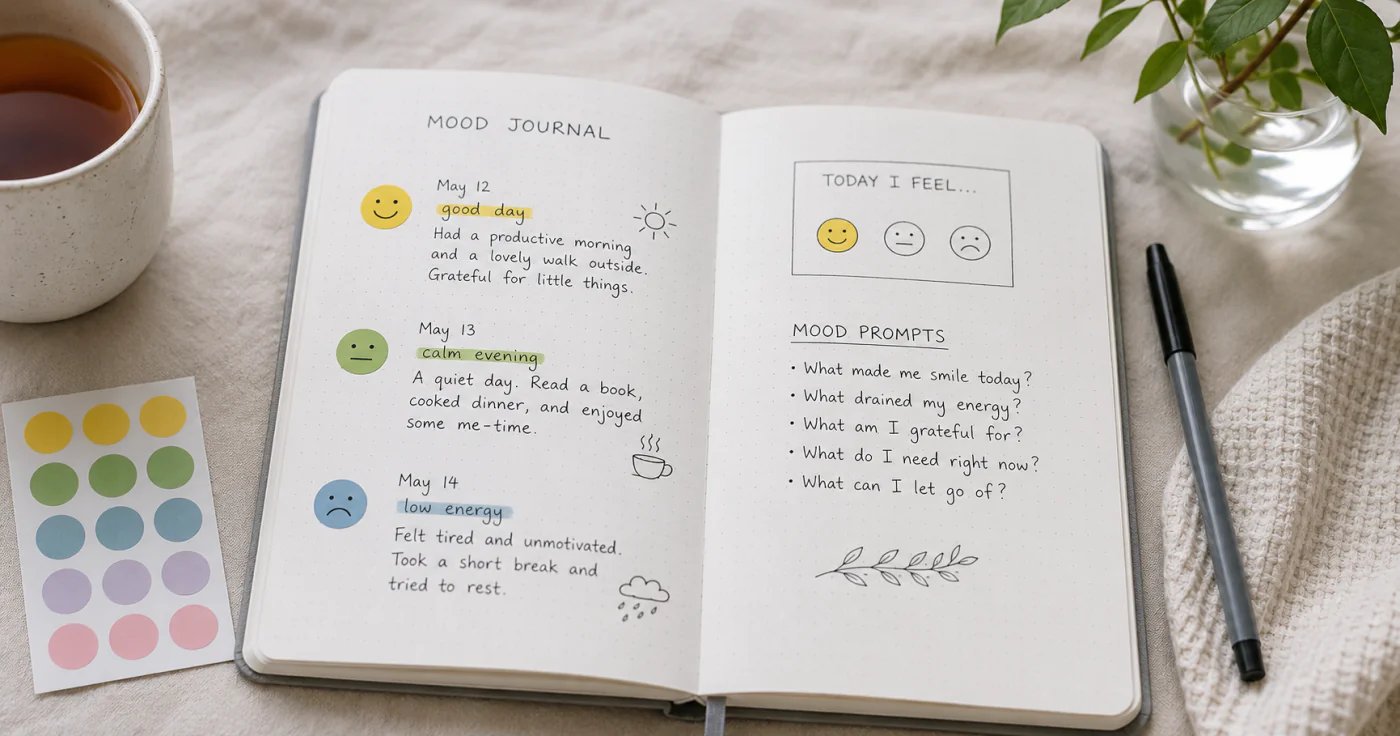 MOOD JOURNAL
May 12
good day
Had a productive morning
and a lovely walk outside.
Grateful for little things.
May 13
calm evening
A quiet day. Read a book,
cooked dinner, and enjoyed
some me-time.
May 14
low energy
Felt tired and unmotivated.
Took a short break and
tried to rest.
TODAY I FEEL...
MOOD PROMPTS
• What made me smile today?
• What drained my energy?
• What am I grateful for?
• What do I need right now?
• What can I let go of?